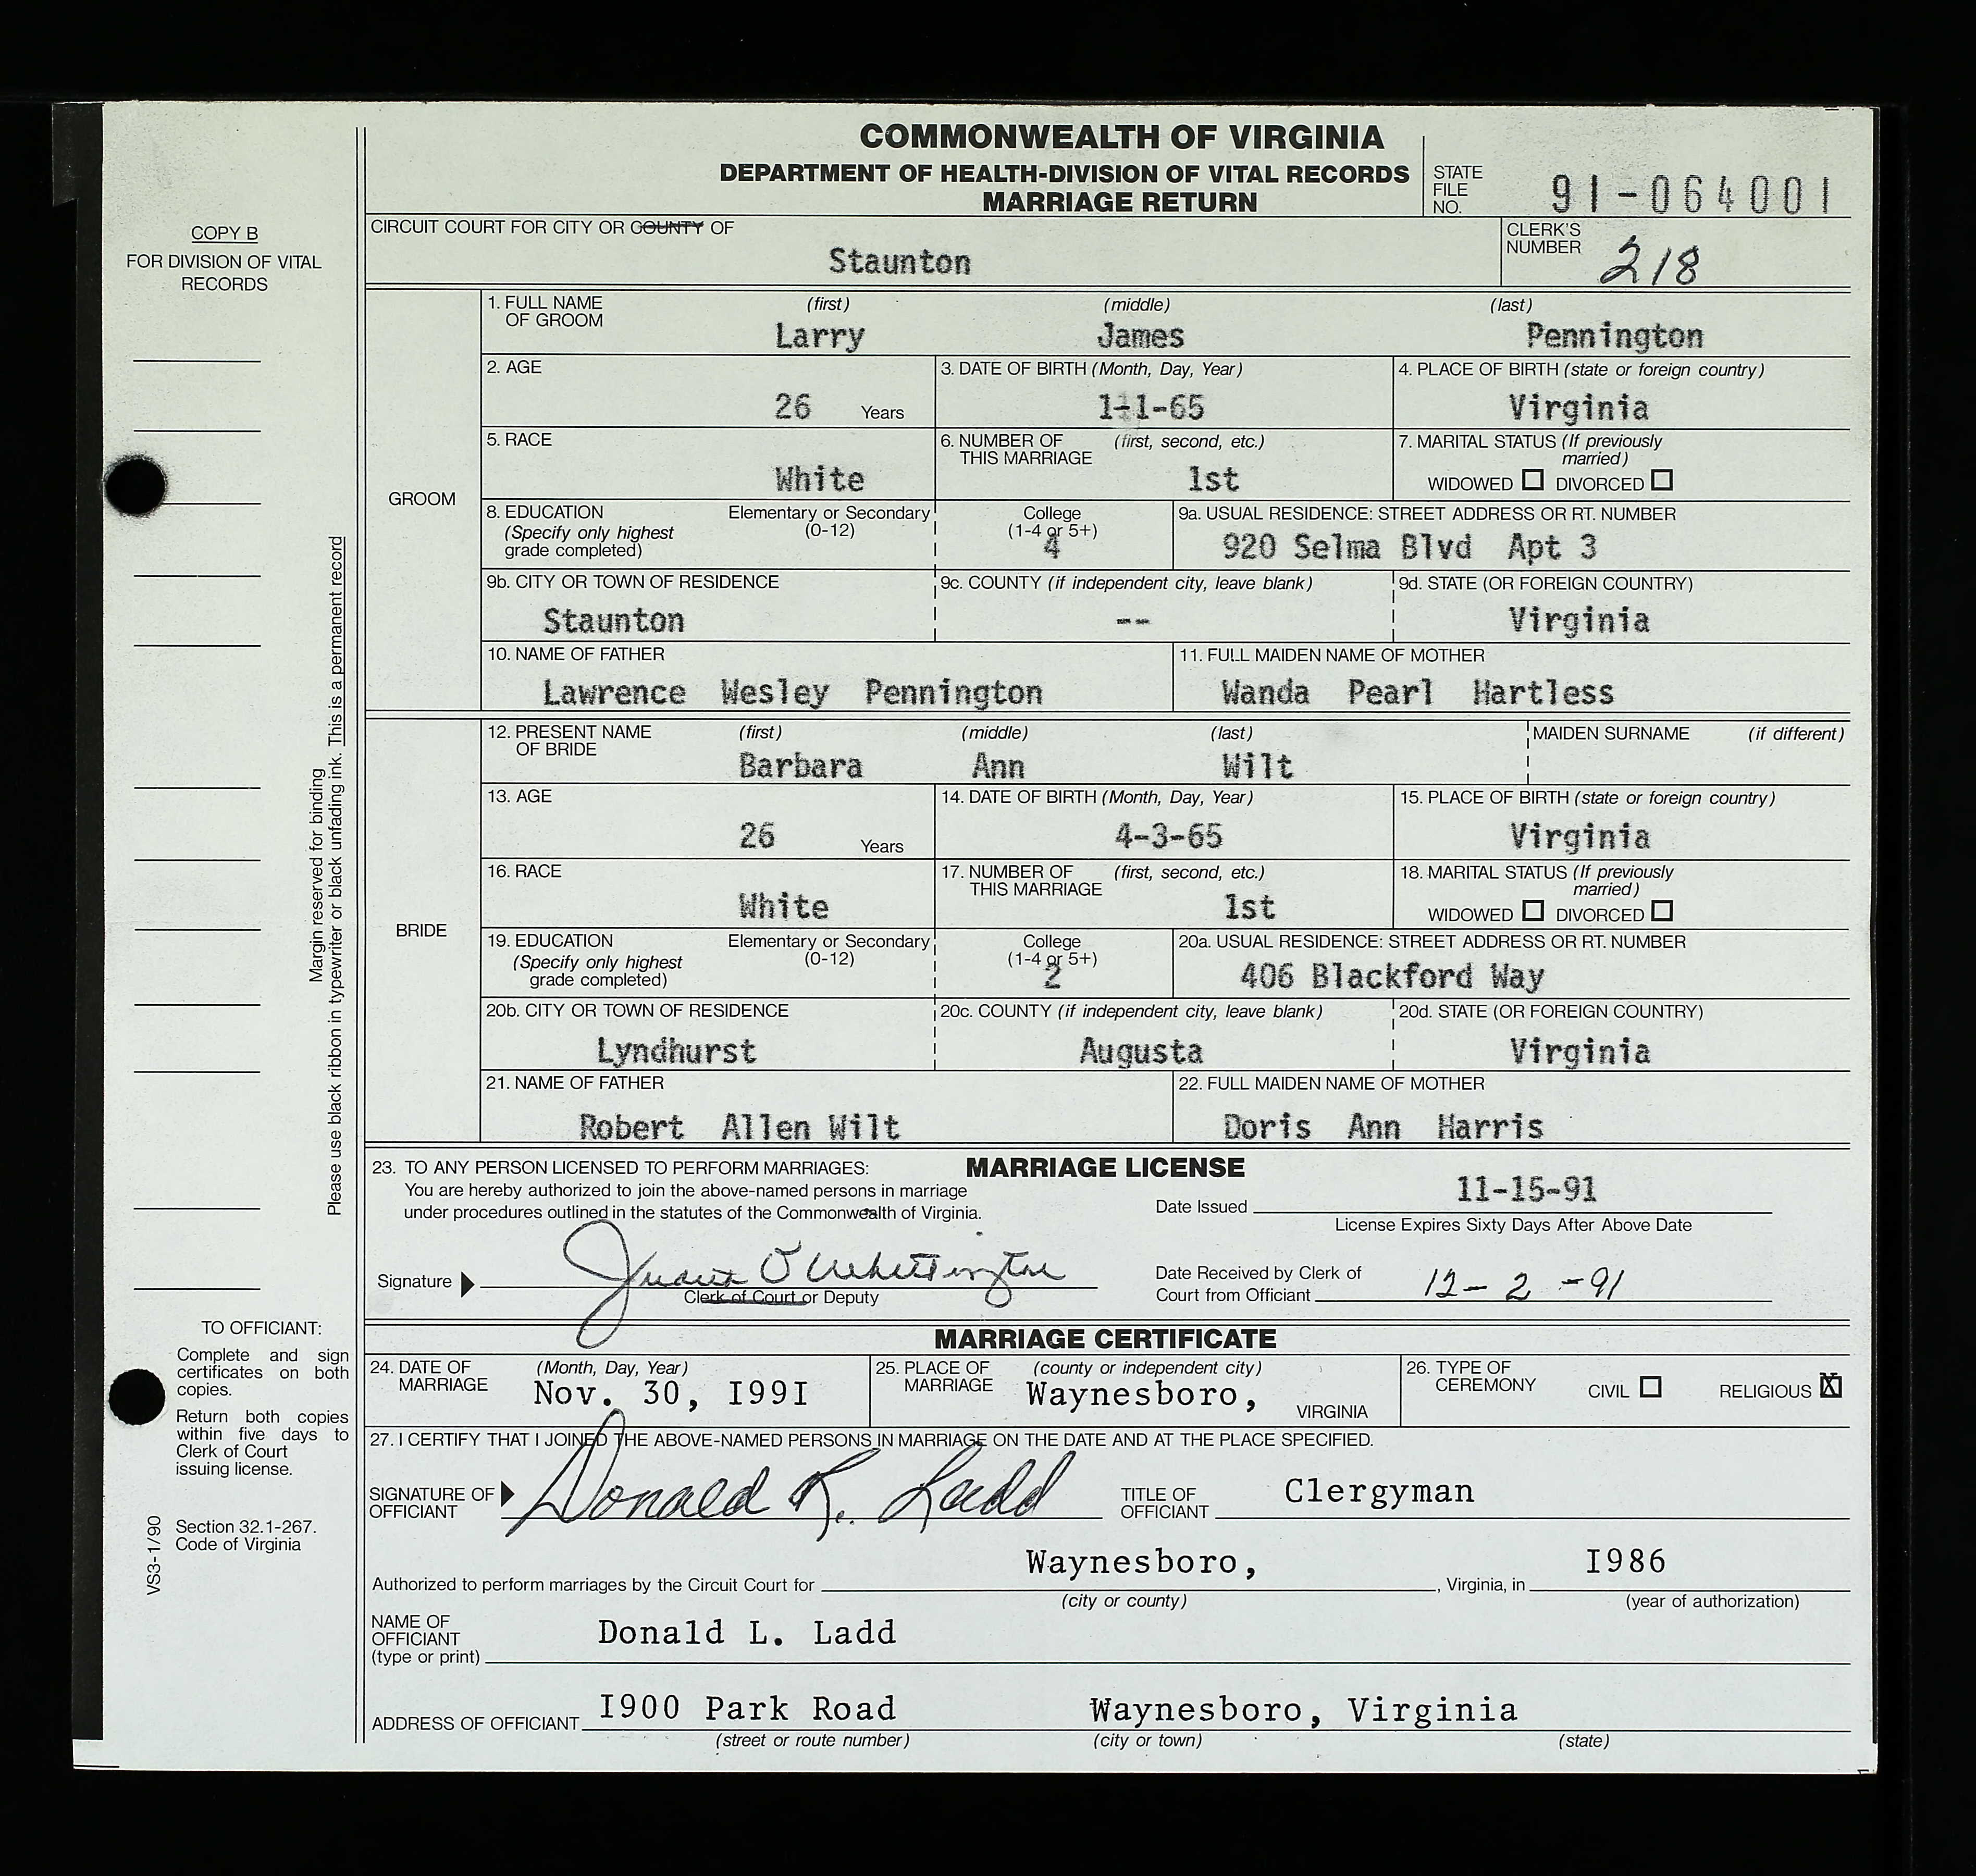 COMMONWEALTH OF VIRGINIA
DEPARTMENT OF HEALTH-DIVISION OF VITAL RECORDS
MARRIAGE RETURN
STATE FILE NO. 91-064001
COPY B
FOR DIVISION OF VITAL RECORDS
CIRCUIT COURT FOR CITY OR COUNTY OF
Staunton
CLERK'S NUMBER 218
Margin reserved for binding
Please use black ribbon in typewriter or black unfading ink. This is a permanent record
GROOM
1. FULL NAME OF GROOM (first) (middle) (last)
Larry James Pennington
2. AGE 3. DATE OF BIRTH (Month, Day, Year) 4. PLACE OF BIRTH (state or foreign country)
26 Years 1-1-65 Virginia
5. RACE 6. NUMBER OF THIS MARRIAGE (first, second, etc.) 7. MARITAL STATUS (If previously married)
White 1st WIDOWED DIVORCED
8. EDUCATION (Specify only highest grade completed) Elementary or Secondary (0-12) College (1-4 or 5+) 9a. USUAL RESIDENCE: STREET ADDRESS OR RT. NUMBER
4 920 Selma Blvd Apt 3
9b. CITY OR TOWN OF RESIDENCE 9c. COUNTY (if independent city, leave blank) 9d. STATE (OR FOREIGN COUNTRY)
Staunton -- Virginia
10. NAME OF FATHER 11. FULL MAIDEN NAME OF MOTHER
Lawrence Wesley Pennington Wanda Pearl Hartless
BRIDE
12. PRESENT NAME OF BRIDE (first) (middle) (last) MAIDEN SURNAME (if different)
Barbara Ann Wilt
13. AGE 14. DATE OF BIRTH (Month, Day, Year) 15. PLACE OF BIRTH (state or foreign country)
26 Years 4-3-65 Virginia
16. RACE 17. NUMBER OF THIS MARRIAGE (first, second, etc.) 18. MARITAL STATUS (If previously married)
White 1st WIDOWED DIVORCED
19. EDUCATION (Specify only highest grade completed) Elementary or Secondary (0-12) College (1-4 or 5+) 20a. USUAL RESIDENCE: STREET ADDRESS OR RT. NUMBER
2 406 Blackford Way
20b. CITY OR TOWN OF RESIDENCE 20c. COUNTY (if independent city, leave blank) 20d. STATE (OR FOREIGN COUNTRY)
Lyndhurst Augusta Virginia
21. NAME OF FATHER 22. FULL MAIDEN NAME OF MOTHER
Robert Allen Wilt Doris Ann Harris
23. TO ANY PERSON LICENSED TO PERFORM MARRIAGES: MARRIAGE LICENSE
You are hereby authorized to join the above-named persons in marriage
under procedures outlined in the statutes of the Commonwealth of Virginia.
Date Issued 11-15-91
License Expires Sixty Days After Above Date
Signature Whittington
Clerk of Court or Deputy
Date Received by Clerk of Court from Officiant 12-2-91
MARRIAGE CERTIFICATE
24. DATE OF MARRIAGE (Month, Day, Year) 25. PLACE OF MARRIAGE (county or independent city) 26. TYPE OF CEREMONY
Nov. 30, I99I Waynesboro, VIRGINIA CIVIL RELIGIOUS X
27. I CERTIFY THAT I JOINED THE ABOVE-NAMED PERSONS IN MARRIAGE ON THE DATE AND AT THE PLACE SPECIFIED.
SIGNATURE OF OFFICIANT Donald L. Ladd TITLE OF OFFICIANT Clergyman
Authorized to perform marriages by the Circuit Court for Waynesboro, , Virginia, in I986
(city or county) (year of authorization)
NAME OF OFFICIANT (type or print) Donald L. Ladd
ADDRESS OF OFFICIANT I900 Park Road Waynesboro, Virginia
(street or route number) (city or town) (state)
TO OFFICIANT:
Complete and sign
certificates on both
copies.
Return both copies
within five days to
Clerk of Court
issuing license.
Section 32.1-267.
Code of Virginia
VS3-1/90